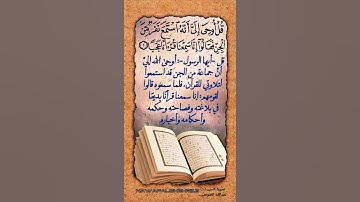 قُلْ أُوحِيَ إِلَيَّ أَنَّهُ اسْتَمَعَ نَفَرٌ مِّنَ
الْجِنِّ فَقَالُوا إِنَّا سَمِعْنَا قُرْآنًا عَجَبًا ١
قل -أيها الرسول-: أوحى الله إليَّ
أنَّ جماعة من الجن قد استمعوا
لتلاوتي للقرآن، فلما سمعوه قالوا
لقومهم: إنا سمعنا قرآنًا بديعًا
في بلاغته وفصاحته وحكمه
وأحكامه وأخباره